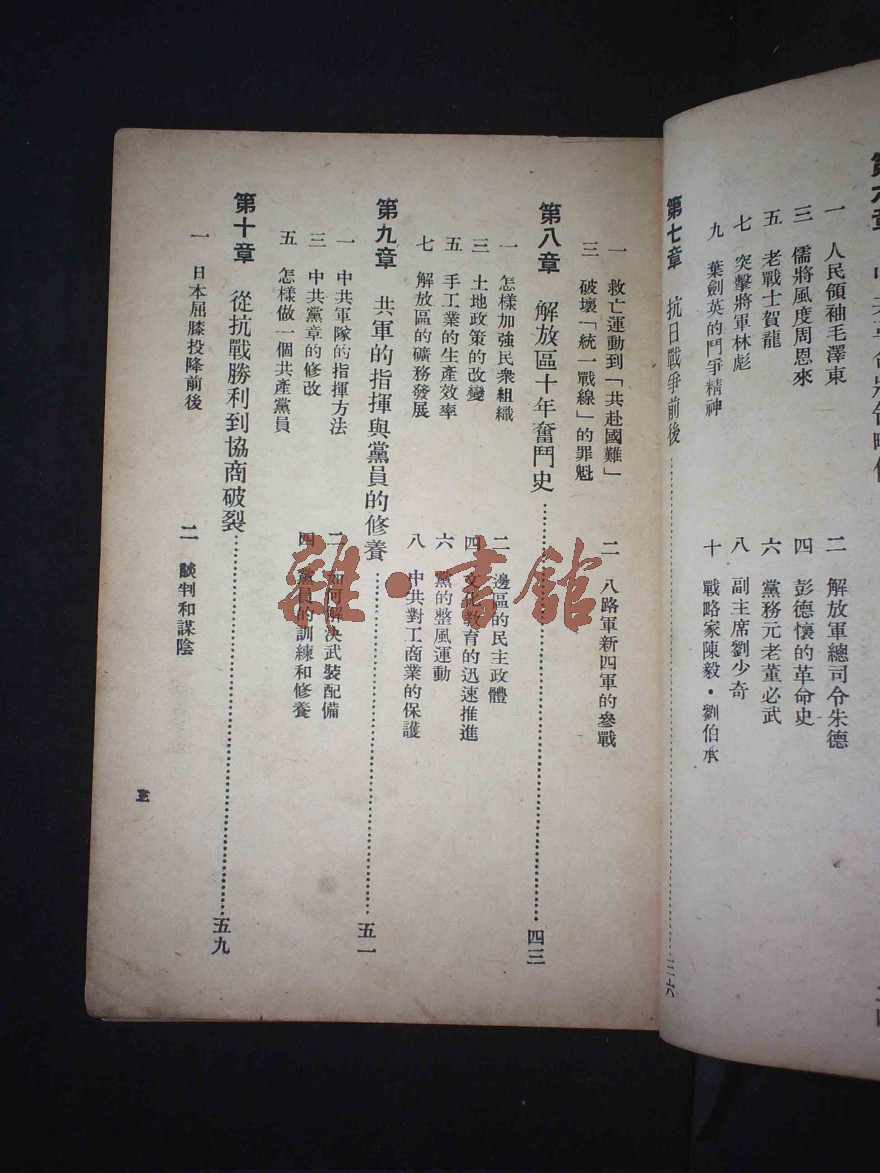 一　人民領袖毛澤東
二　解放軍總司令朱德
三　儒將風度周恩來
四　彭德懷的革命史
五　老戰士賀龍
六　黨務元老董必武
七　突擊將軍林彪
八　副主席劉少奇
九　葉劍英的鬥爭精神
十　戰略家陳毅・劉伯承
第七章　抗日戰爭前後……三六
一　救亡運動到「共赴國難」
二　八路軍新四軍的參戰
三　破壞「統一戰線」的罪魁
第八章　解放區十年奮鬥史……四三
一　怎樣加強民衆組織
二　邊區的民主政體
三　土地政策的改變
四　文化教育的迅速推進
五　手工業的生產效率
六　黨的整風運動
七　解放區的礦務發展
八　中共對工商業的保護
第九章　共軍的指揮與黨員的修養……五一
一　中共軍隊的指揮方法
二　如何解決武裝配備
三　中共黨章的修改
四　黨員的訓練和修養
五　怎樣做一個共產黨員
第十章　從抗戰勝利到協商破裂……五九
一　日本屈膝投降前後
二　談判和謀陰
雜・書館